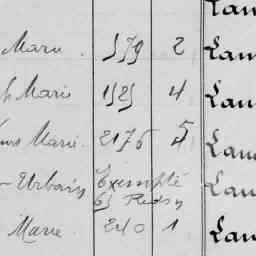 Lau
Marie 579 2 Lau
Marie 1525 4 Lau
Marie 2176 5 Lau
Urbain Exempté Lau
65
Marie 240 1 Lau